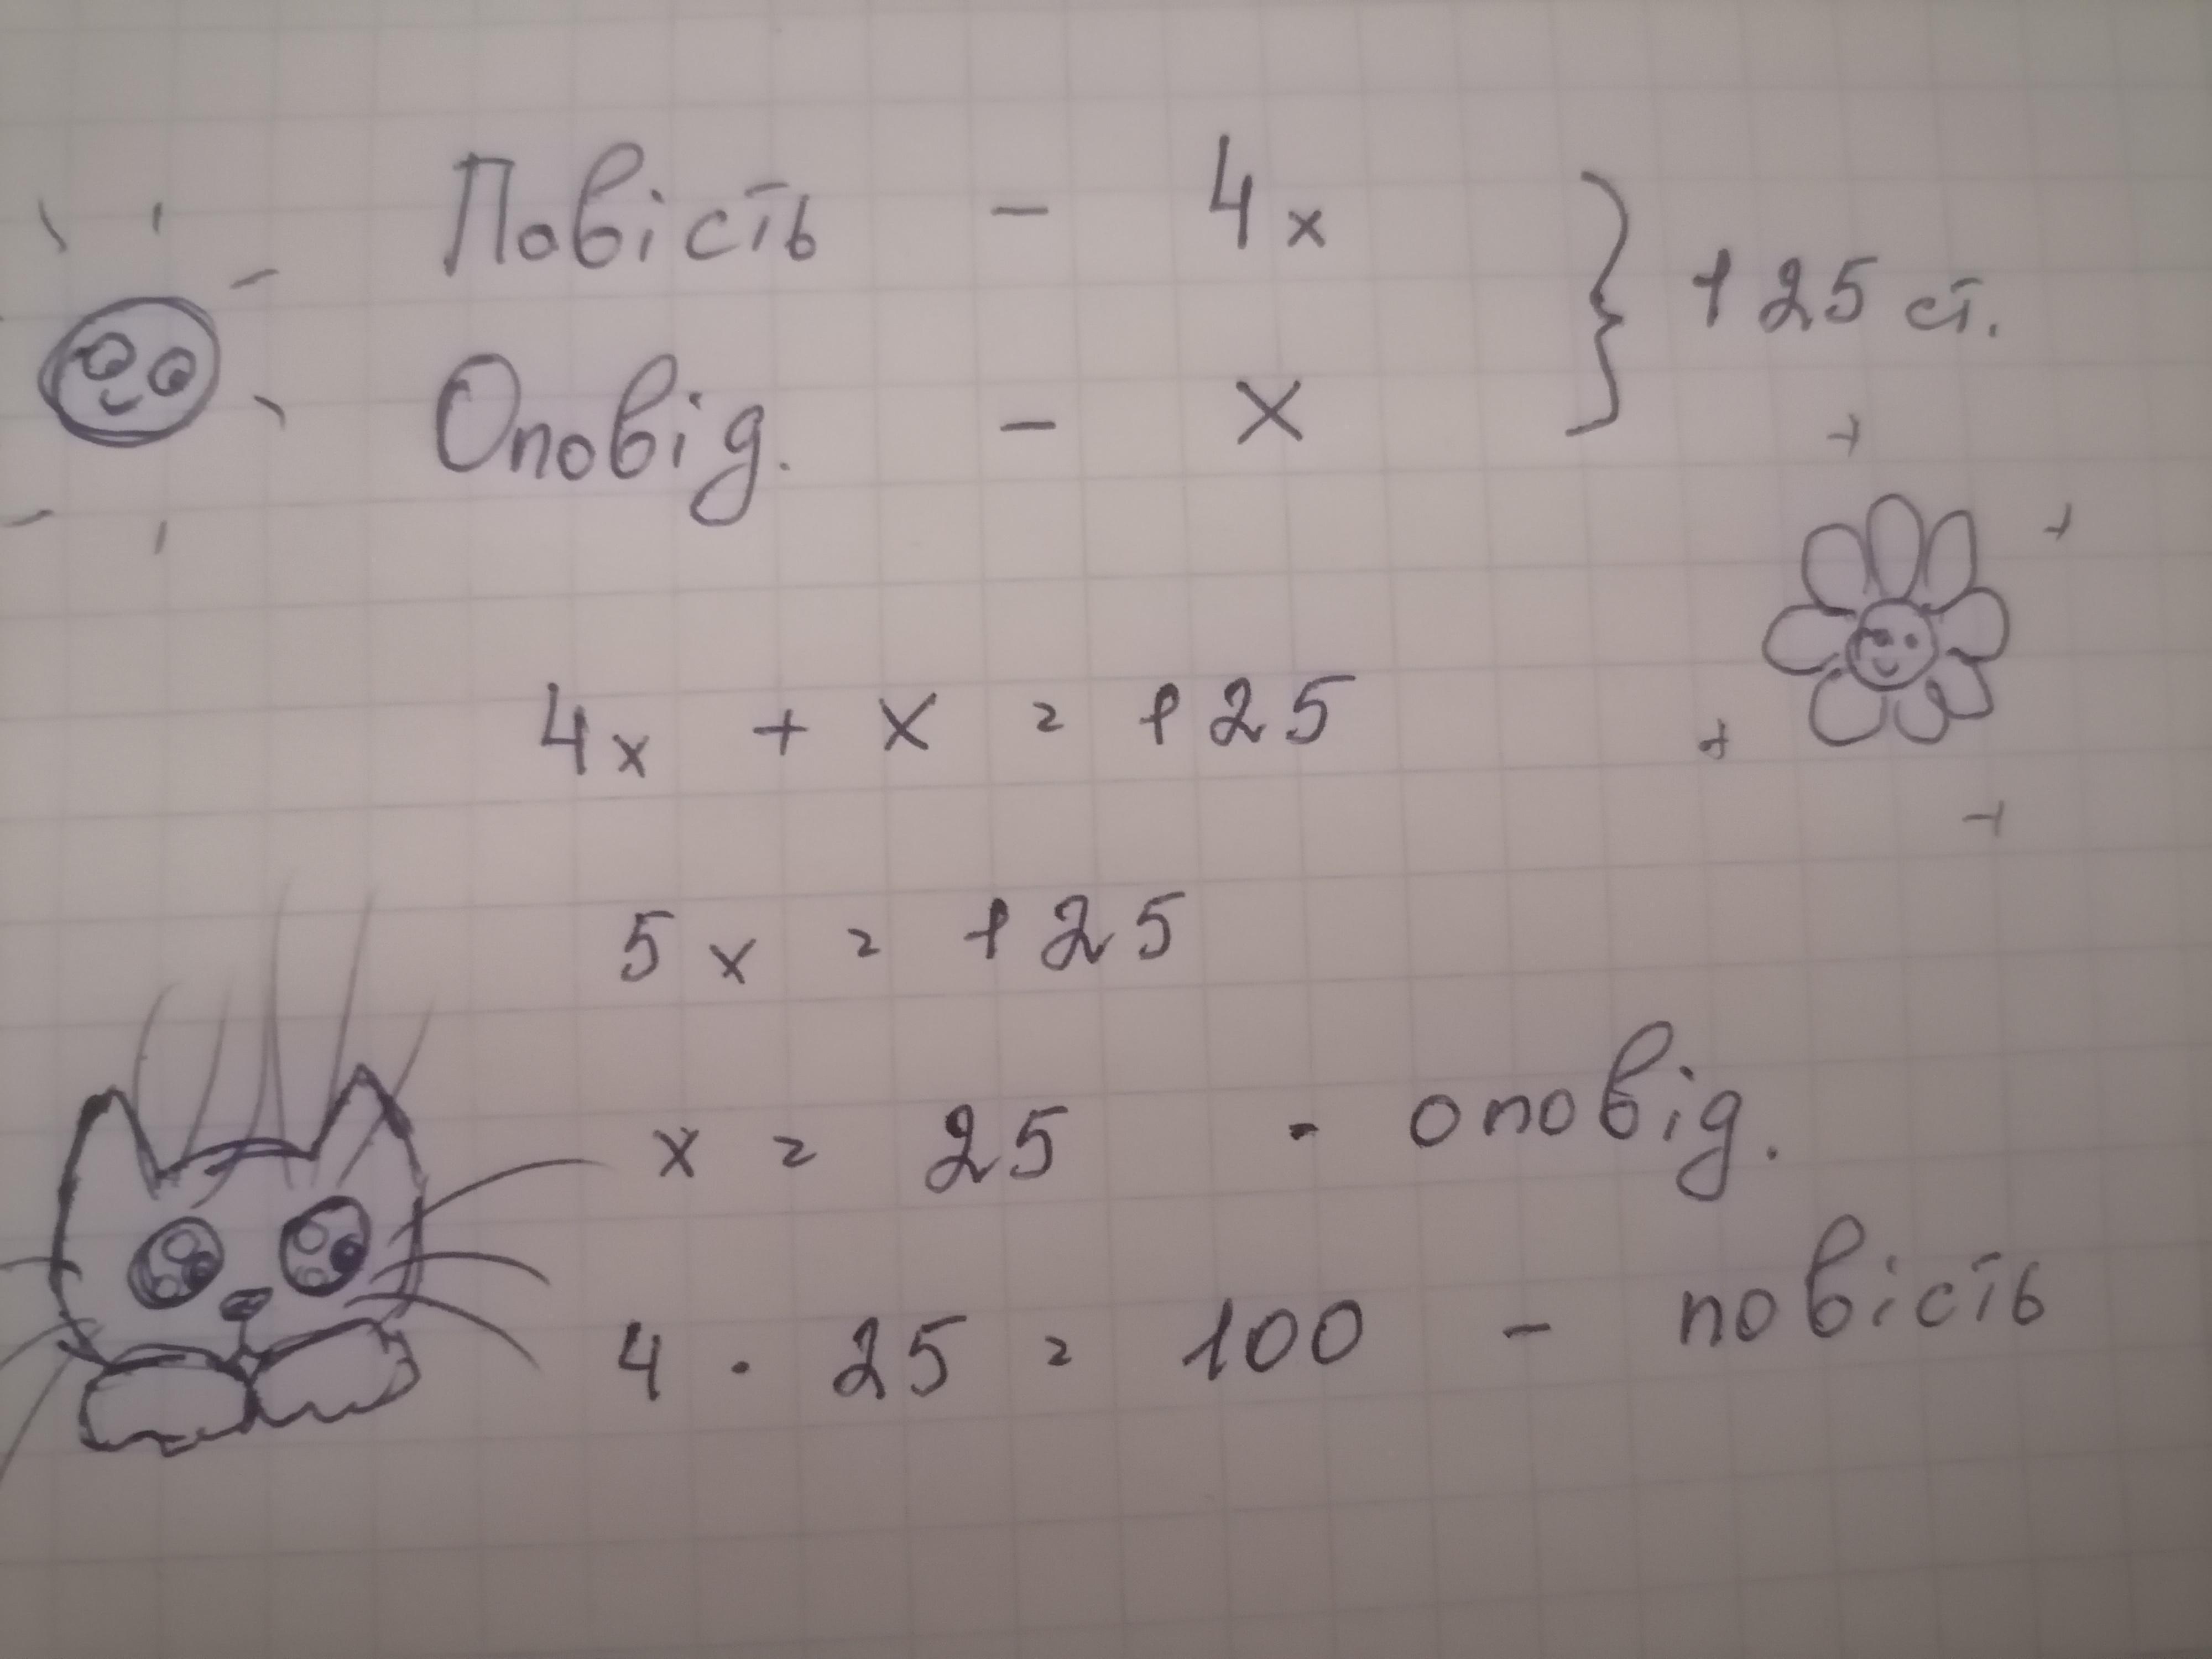 Повість - 4x } 125 ст.
Оповід. - x
4x + x = 125
5x = 125
x = 25 - оповід.
4 · 25 = 100 - повість